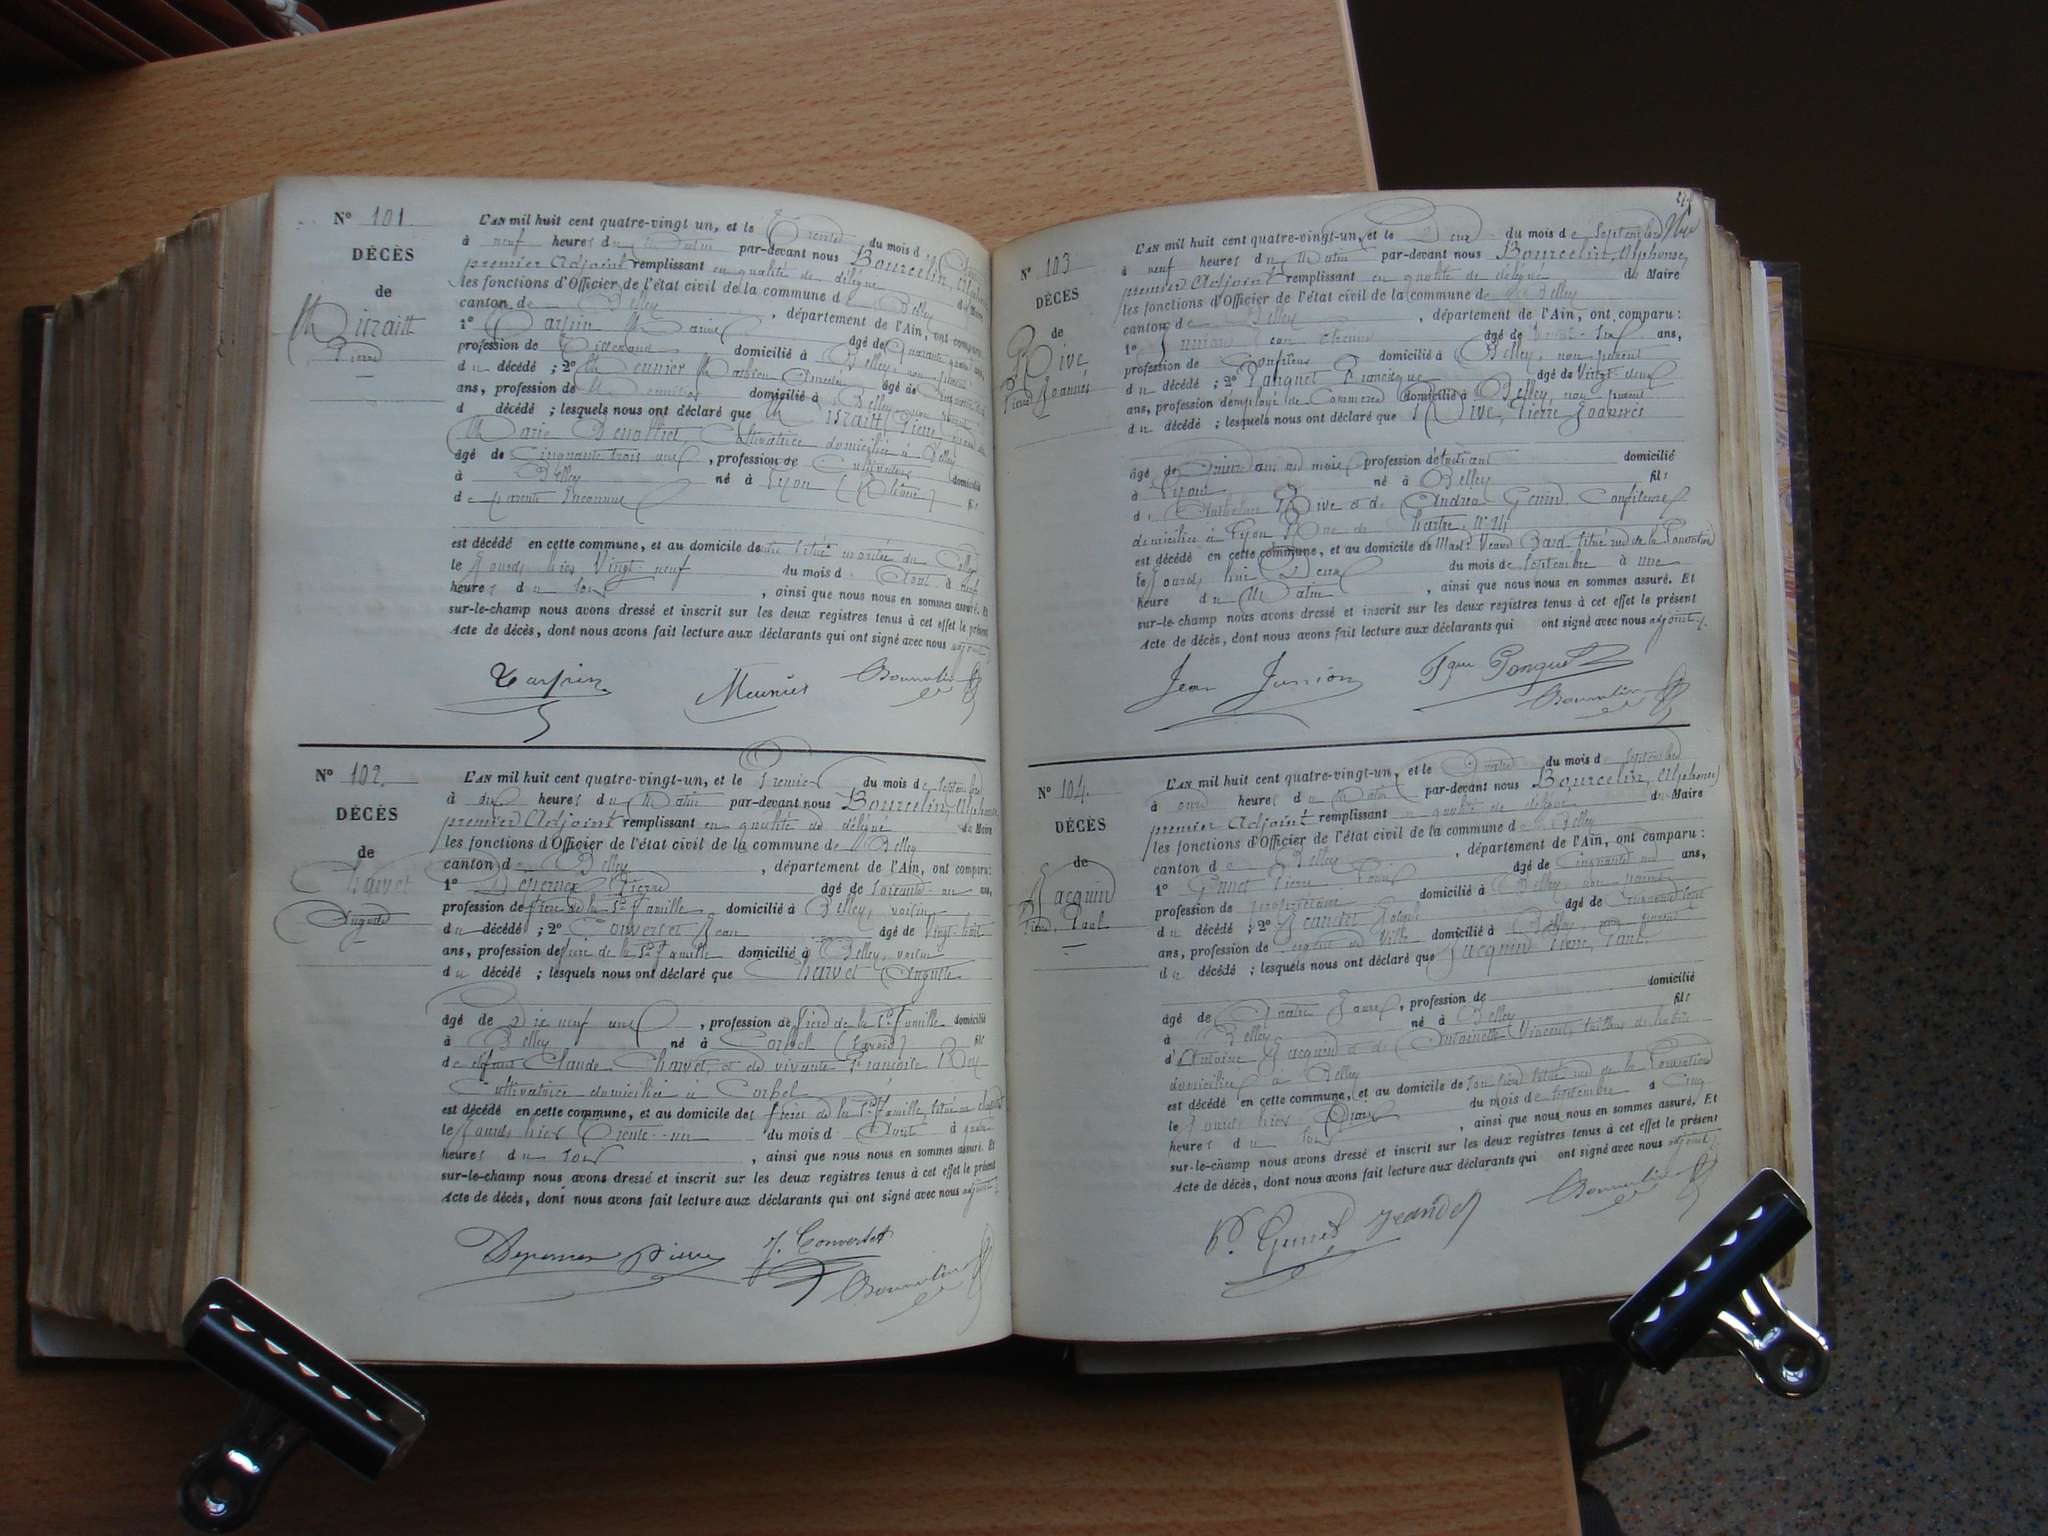 N° 101.
DÉCÈS
de
Mizraitt
Pierre
L'AN mil huit cent quatre-vingt un, et le Trente du mois d'Août
à neuf heures du Matin par-devant nous Bourcelin, Alphonse
premier Adjoint remplissant en qualité de délégué du Maire
les fonctions d'Officier de l'état civil de la commune de Belley
canton de Belley, département de l'Ain, ont comparu:
1° Tarpin âgé de Quarante ans,
profession de domicilié à Belley, non parent
du décédé ; 2° Meunier Mathieu âgé de
ans, profession de Menuisier domicilié à Belley, non parent
d décédé ; lesquels nous ont déclaré que Mizraitt Pierre
Marie Cultivatrice domiciliée à Belley
âgé de Cinquante trois ans, profession de Cultivateur domicilié
à Belley né à Lyon (Rhône) fils
de parents Inconnus
est décédé en cette commune, et au domicile de situé montée du Collège
le Jourd'hier Vingt-neuf du mois d'Août à neuf
heures du soir, ainsi que nous nous en sommes assuré. Et
sur-le-champ nous avons dressé et inscrit sur les deux registres tenus à cet effet le présent
Acte de décès, dont nous avons fait lecture aux déclarants qui ont signé avec nous adjoint.
Tarpin Meunier Bourcelin
N° 102.
DÉCÈS
de
Charvet
Auguste
L'AN mil huit cent quatre-vingt-un, et le Premier du mois de Septembre
à dix heures du Matin par-devant nous Bourcelin, Alphonse,
premier Adjoint remplissant en qualité de délégué du Maire
les fonctions d'Officier de l'état civil de la commune de Belley
canton de Belley, département de l'Ain, ont comparu:
1° Pierre âgé de soixante-un ans,
profession de frère de la Ste Famille domicilié à Belley, voisin
du décédé ; 2° Convertet Jean âgé de Vingt-huit
ans, profession de frère de la Ste Famille domicilié à Belley, voisin
du décédé ; lesquels nous ont déclaré que Charvet Auguste
âgé de Dix neuf ans, profession de frère de la Ste Famille domicilié
à Belley né à Corbel (Savoie) fils
de défunt Claude Charvet, et de vivante Françoise Rey
Cultivatrice domiciliée à Corbel
est décédé en cette commune, et au domicile des frères de la Ste Famille, situé
le Jourd'hier Trente-un du mois d'Août à quatre
heures du soir, ainsi que nous nous en sommes assuré. Et
sur-le-champ nous avons dressé et inscrit sur les deux registres tenus à cet effet le présent
Acte de décès, dont nous avons fait lecture aux déclarants qui ont signé avec nous adjoint.
Pierre J. Convertet
Bourcelin
N° 103
DÉCÈS
de
Rive,
Pierre Joannès
L'AN mil huit cent quatre-vingt-un, et le Deux du mois de Septembre
à neuf heures du Matin par-devant nous Bourcelin, Alphonse,
premier Adjoint remplissant en qualité de délégué du Maire
les fonctions d'Officier de l'état civil de la commune de Belley
canton de Belley, département de l'Ain, ont comparu:
1° Junion Jean Etienne âgé de Vingt-six ans,
profession de Confiseur domicilié à Belley, non parent
du décédé ; 2° Panguet Francisque âgé de Vingt-deux
ans, profession d'employé de Commerce domicilié à Belley, non parent
du décédé ; lesquels nous ont déclaré que Rive, Pierre Joannès
âgé de ans mois, profession d'étudiant domicilié
à Lyon né à Belley fils
de Rive et de Andréa Genin, Confiseurs
domiciliés à Lyon Rue de Chartres N° 14
est décédé en cette commune, et au domicile de Made Veuve situé rue de la Providence
le Jourd'hui Deux du mois de Septembre à une
heure du Matin, ainsi que nous nous en sommes assuré. Et
sur-le-champ nous avons dressé et inscrit sur les deux registres tenus à cet effet le présent
Acte de décès, dont nous avons fait lecture aux déclarants qui ont signé avec nous adjoint.
Jean Junion Fque Panguet
Bourcelin
N° 104.
DÉCÈS
de
Jacquin
Pierre, Paul
L'AN mil huit cent quatre-vingt-un, et le Quatre du mois de Septembre
à onze heures du Matin par-devant nous Bourcelin, Alphonse,
premier Adjoint remplissant en qualité de délégué du Maire
les fonctions d'Officier de l'état civil de la commune de Belley
canton de Belley, département de l'Ain, ont comparu:
1° Pierre Louis âgé de Cinquante ans,
profession de propriétaire domicilié à Belley, non parent
du décédé ; 2° Jeandet âgé de
ans, profession de sergent de Ville domicilié à Belley, non parent
du décédé ; lesquels nous ont déclaré que Jacquin Pierre, Paul
âgé de Quatre Jours, profession de domicilié
à Belley né à Belley fils
d'Antoine Jacquin et d'Antoinette Vincent, tailleur de habits
domiciliés à Belley
est décédé en cette commune, et au domicile de son père situé rue de la Providence
le Jourd'hier Trois du mois de Septembre à Cinq
heures du soir, ainsi que nous nous en sommes assuré. Et
sur-le-champ nous avons dressé et inscrit sur les deux registres tenus à cet effet le présent
Acte de décès, dont nous avons fait lecture aux déclarants qui ont signé avec nous adjoint.
Jeandet
Bourcelin